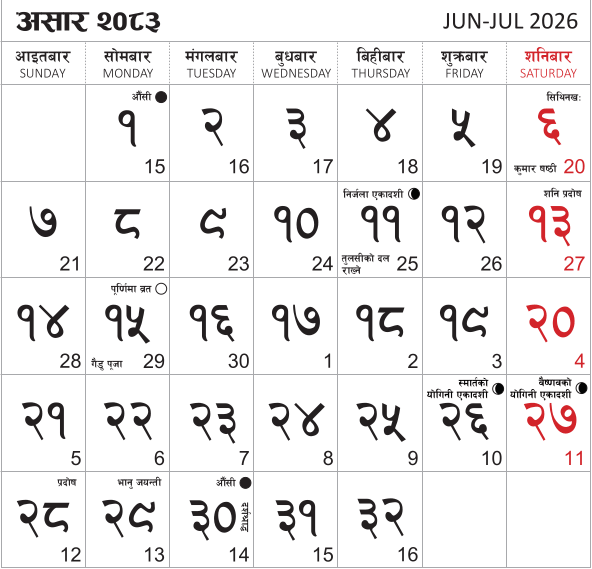 असार २०८३ JUN-JUL 2026
आइतबार सोमबार मंगलबार बुधबार बिहीबार शुक्रबार शनिबार
SUNDAY MONDAY TUESDAY WEDNESDAY THURSDAY FRIDAY SATURDAY
औंसी सिथिनखः
१ २ ३ ४ ५ ६
कुमार षष्ठी
15 16 17 18 19 20
निर्जला एकादशी शनि प्रदोष
७ ८ ९ १० ११ १२ १३
तुलसीको दल
राख्ने
21 22 23 24 25 26 27
पूर्णिमा व्रत
१४ १५ १६ १७ १८ १९ २०
गैडु पूजा
28 29 30 1 2 3 4
स्मार्तको वैष्णवको
योगिनी एकादशी योगिनी एकादशी
२१ २२ २३ २४ २५ २६ २७
5 6 7 8 9 10 11
प्रदोष भानु जयन्ती औंसी
२८ २९ ३० ३१ ३२
दर्शश्राद्ध
12 13 14 15 16